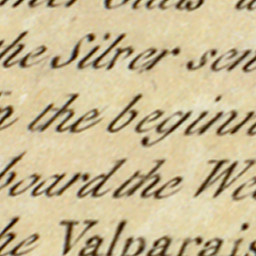 the Silver sen
the beginn
board the We
he Valparais